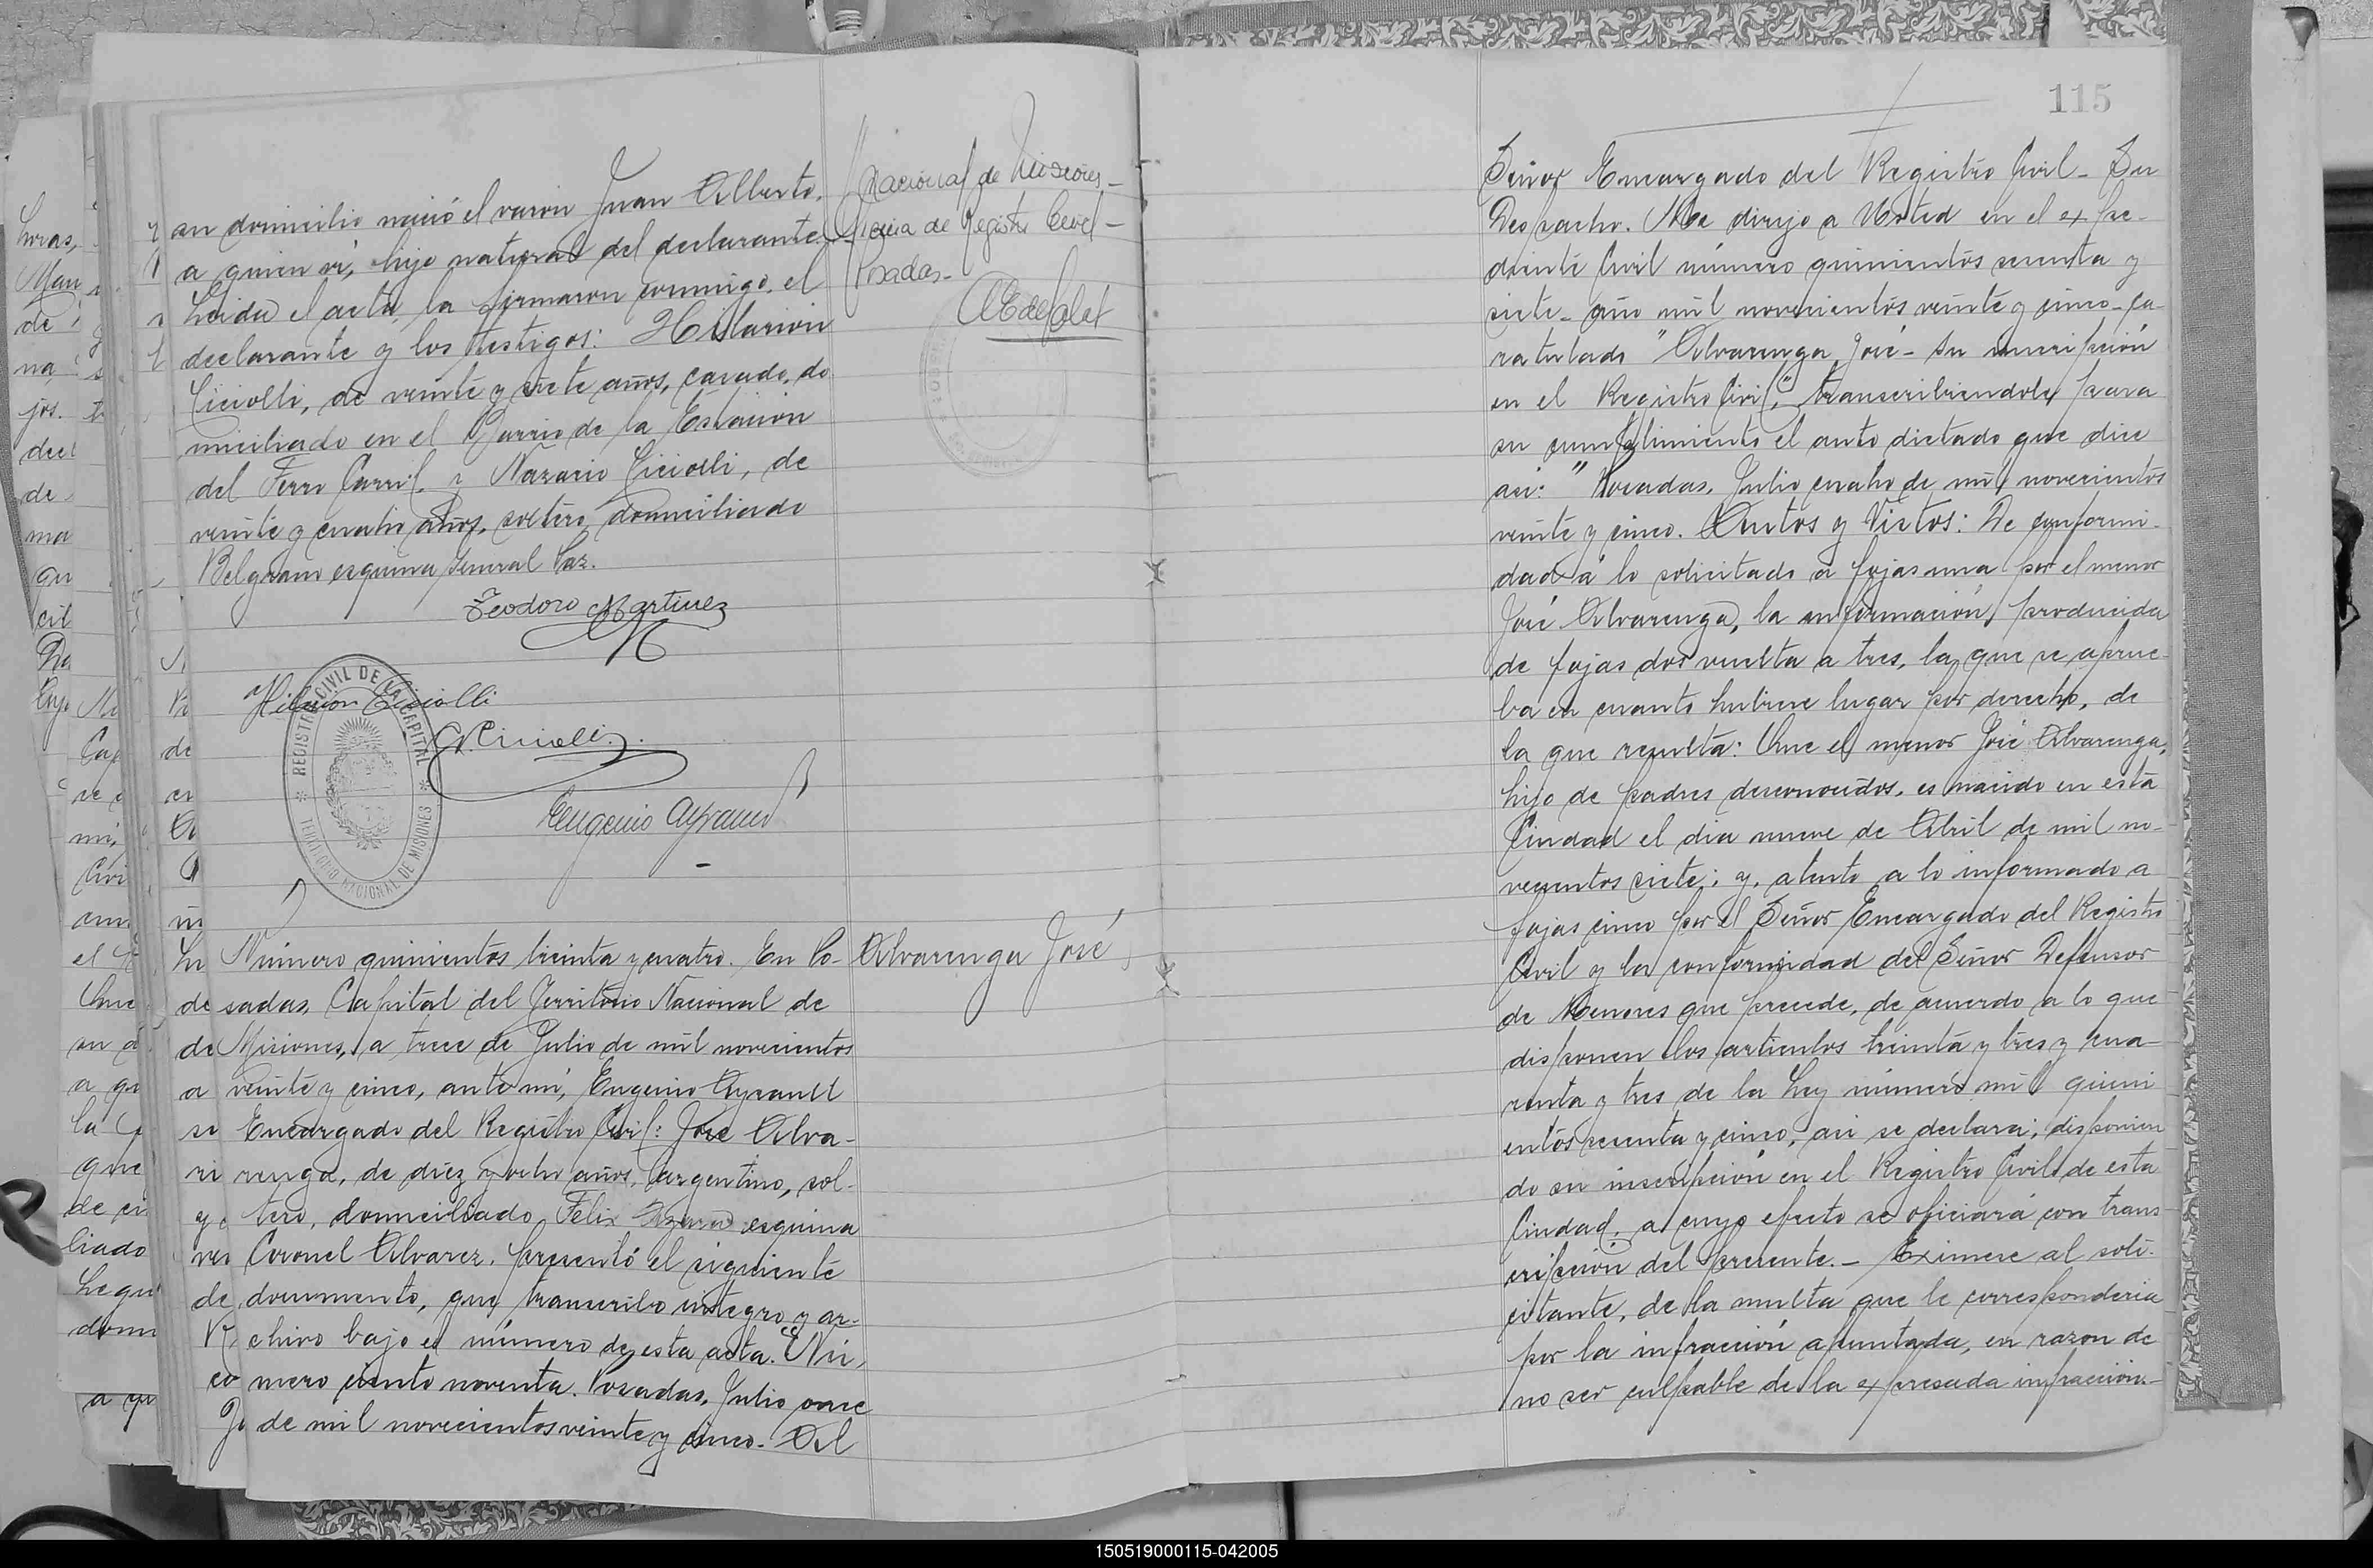 su domicilio nació el varon Juan Alberto,
a quien ví, hijo natural del declarante.
Leida el acta, la firmaron conmigo, el
declarante y los testigos: Hilarion
Ciciolli, de veinte y siete años, casado, do
miciliado en el Barrio de la Estacion
del Ferro Carril y Nazario Ciciolli, de
veinte y cuatro años, soltero, domiciliado
Belgrano esquina General Paz.
Teodoro Martinez
Hilarion Ciciolli
N. Ciciolli
Eugenio Ayrault
REGISTRO CIVIL DE LA CAPITAL
TERRITORIO NACIONAL DE MISIONES
Nacional de Misiones -
Oficina de Registro Civil -
Posadas -
Alvarenga José
Número quinientos treinta y cuatro. En Po-
sadas, Capital del Territorio Nacional de
Misiones, a trece de Julio de mil novecientos
veinte y cinco, ante mí, Eugenio Ayrault
Encargado del Registro Civil: José Alva-
renga, de diez y ocho años, argentino, sol-
tero, domiciliado Felix Azara esquina
Coronel Alvarez, presentó el siguiente
documento, que transcribo integro y ar-
chivo bajo el número de esta acta. "Nú-
mero ciento noventa. Posadas, Julio once
de mil novecientos veinte y cinco. Al
115
Señor Encargado del Registro Civil - Su
Despacho. Me dirijo a Usted en el expe-
diente Civil número quinientos sesenta y
siete - año mil novecientos veinte y cinco - ca-
ratulado "Alvarenga José - su inscripción
en el Registro Civil", transcribiendole para
su cumplimiento el auto dictado que dice
asi: "Posadas, Julio cuatro de mil novecientos
veinte y cinco. Autos y Vistos: De conformi-
dad a lo solicitado a fojas una por el menor
José Alvarenga, la información producida
de fojas dos vuelta a tres, la que se aprue-
ba en cuanto hubiere lugar por derecho, de
la que resulta: Que el menor José Alvarenga,
hijo de padres desconocidos, es nacido en esta
Ciudad el dia nueve de Abril de mil no-
vecientos siete; y, atento a lo informado a
fojas cinco por el Señor Encargado del Registro
Civil y la conformidad del Señor Defensor
de Menores que precede, de acuerdo a lo que
disponen los articulos treinta y tres y cua-
renta y tres de la Ley número mil quini
entos sesenta y cinco, asi se declara; disponien
do su inscripción en el Registro Civil de esta
Ciudad, a cuyo efecto se oficiará con trans
cripción del presente. - Eximese al soli-
citante, de la multa que le corresponderia
por la infracción apuntada, en razon de
no ser culpable de la expresada infracción. -
150519000115-042005